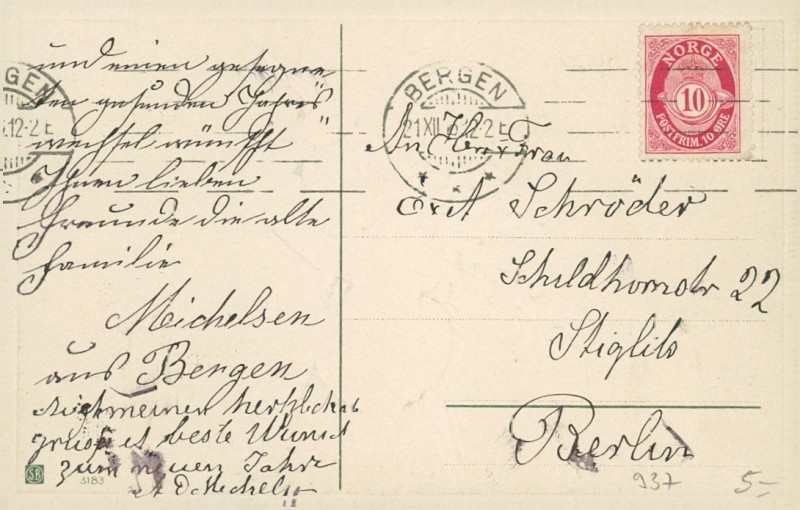 und einen gesegne
ten gesunden Jahres
wechsel wünscht
Ihnen lieben
Freunde die alte
Familie
Michelsen
aus Bergen
Auch meinen
gruß beste Wunsch
zum neuen Jahre
SB
3183
BERGEN
21 XII 12-2 E
GEN
.12-2 E
NORGE
10
POSTFRIM. 10 ØRE
An Herr Frau
Schröder
Schildhornstr 22
Stiglits
Berlin
937
5-